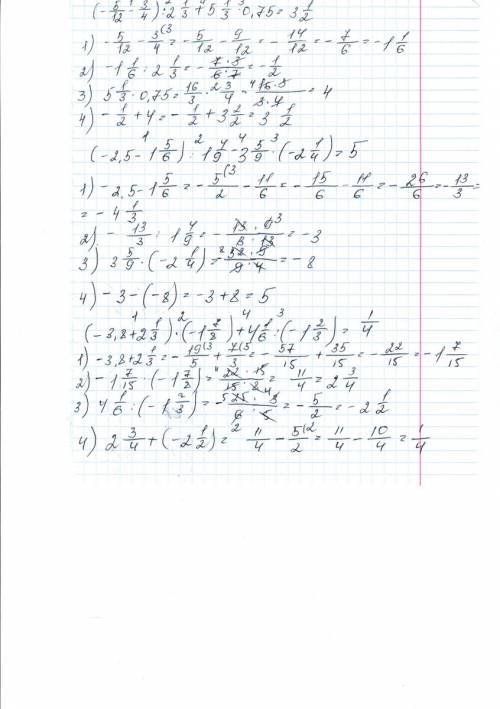 (-5/12 - 3/4) : 2 1/3 + 5 1/3 · 0,75 = 3 1/2
1) -5/12 - 3/4 (3 = -5/12 - 9/12 = -14/12 = -7/6 = -1 1/6
2) -1 1/6 : 2 1/3 = -7·3/6·7 = -1/2
3) 5 1/3 · 0,75 = 16/3 · 3/4 = 16·3/3·4 = 4
4) -1/2 + 4 = -1/2 + 3 2/2 = 3 1/2
1 2 4 3
(-2,5 - 1 5/6) : 1 4/9 - 3 5/9 · (-2 1/4) = 5
1) -2,5 - 1 5/6 = -5/2 (3 - 11/6 = -15/6 - 11/6 = -26/6 = -13/3 =
= -4 1/3
2) -13/3 : 1 4/9 = -13·9/3·13 3 = -3
3) 3 5/9 · (-2 1/4) = -8 32·9/9·4 = -8
4) -3 - (-8) = -3 + 8 = 5
1 2 4 3
(-3,8 + 2 1/3) · (-1 7/8) + 4 1/6 : (-1 2/3) = 1/4
1) -3,8 + 2 1/3 = -19/5 (3 + 7/3 (5 = -57/15 + 35/15 = -22/15 = -1 7/15
2) -1 7/15 · (-1 7/8) = 22·15/15·8 4 = 11/4 = 2 3/4
3) 4 1/6 : (-1 2/3) = -5 25·3/6·5 = -5/2 = -2 1/2
4) 2 3/4 + (-2 1/2) = 11/4 - 5/2 (2 = 11/4 - 10/4 = 1/4